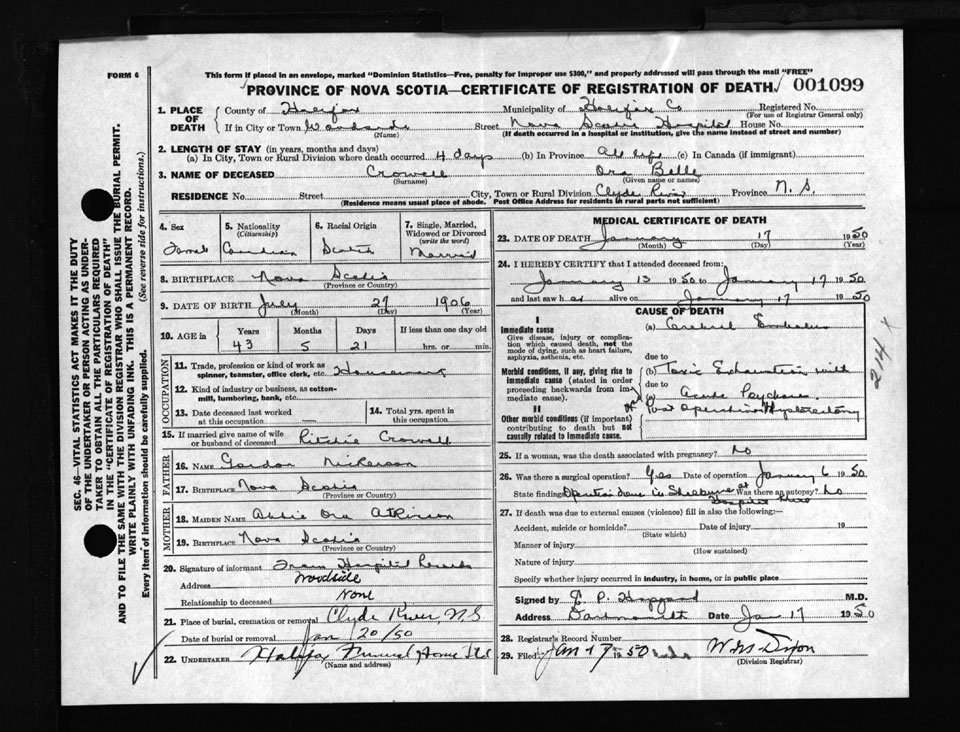 FORM 6
This form if placed in an envelope, marked "Dominion Statistics—Free, penalty for improper use $300," and properly addressed will pass through the mail "FREE"
PROVINCE OF NOVA SCOTIA—CERTIFICATE OF REGISTRATION OF DEATH 001099
1. PLACE OF DEATH County of Halifax Municipality of Halifax Co Registered No.
(For use of Registrar General only)
If in City or Town Street Nova Scotia Hospital House No.
(Name) (If death occurred in a hospital or institution, give the name instead of street and number)
2. LENGTH OF STAY (in years, months and days)
(a) In City, Town or Rural Division where death occurred 4 days (b) In Province All life (c) In Canada (if immigrant)
3. NAME OF DECEASED Crowell Ora Belle
(Surname) (Given name or names)
RESIDENCE No. Street City, Town or Rural Division Clyde River Province N. S.
(Residence means usual place of abode. Post Office Address for residents in rural parts not sufficient)
4. Sex 5. Nationality (Citizenship) 6. Racial Origin 7. Single, Married, Widowed or Divorced (write the word)
Canadian Scotch Married
8. BIRTHPLACE Nova Scotia
(Province or Country)
9. DATE OF BIRTH July 27 1906
(Month) (Day) (Year)
10. AGE in Years Months Days If less than one day old
43 5 21 hrs. or min.
OCCUPATION
11. Trade, profession or kind of work as spinner, teamster, office clerk, etc. Housework
12. Kind of industry or business, as cotton-mill, lumbering, bank, etc.
13. Date deceased last worked at this occupation — 14. Total yrs. spent in this occupation
15. If married give name of wife or husband of deceased Ritchie Crowell
FATHER
16. NAME Gordon Nickerson
17. BIRTHPLACE Nova Scotia
(Province or Country)
MOTHER
18. MAIDEN NAME Abbie Ora Atkinson
19. BIRTHPLACE Nova Scotia
(Province or Country)
20. Signature of informant From Hospital Records
Address Woodside
Relationship to deceased None
21. Place of burial, cremation or removal Clyde River, N.S
Date of burial or removal Jan 20/50
22. UNDERTAKER Halifax Funeral Home Ltd
(Name and address)
MEDICAL CERTIFICATE OF DEATH
23. DATE OF DEATH January 17 1950
(Month) (Day) (Year)
24. I HEREBY CERTIFY that I attended deceased from:
January 13 1950 to January 17 1950
and last saw her alive on January 17 1950
CAUSE OF DEATH
I
Immediate cause (a) Cerebral Embolus
Give disease, injury or complication which caused death, not the mode of dying, such as heart failure, asphyxia, asthenia, etc.
due to
Morbid conditions, if any, giving rise to immediate cause (stated in order proceeding backwards from immediate cause). (b) Toxic Exhaustion with
due to
(c) Acute Psychosis
II
Other morbid conditions (if important) contributing to death but not causally related to immediate cause. Post Operative Hysterectomy
214
25. If a woman, was the death associated with pregnancy? No
26. Was there a surgical operation? Yes Date of operation January 6 1950
State findings Operation done in Shelburne Was there an autopsy? No
27. If death was due to external causes (violence) fill in also the following:—
Accident, suicide or homicide? Date of injury 19
(State which)
Manner of injury
(How sustained)
Nature of injury
Specify whether injury occurred in industry, in home, or in public place
Signed by M.D.
Address Dartmouth Date Jan 17 1950
28. Registrar's Record Number
29. Filed Jan 17 1950 W M Dixon
(Division Registrar)
SEC. 46—VITAL STATISTICS ACT MAKES IT THE DUTY
OF THE UNDERTAKER OR PERSON ACTING AS UNDER-
TAKER TO OBTAIN ALL THE PARTICULARS REQUIRED
IN THE "CERTIFICATE OF REGISTRATION OF DEATH"
AND TO FILE THE SAME WITH THE DIVISION REGISTRAR WHO SHALL ISSUE THE BURIAL PERMIT.
WRITE PLAINLY WITH UNFADING INK. THIS IS A PERMANENT RECORD.
Every item of information should be carefully supplied. (See reverse side for instructions.)